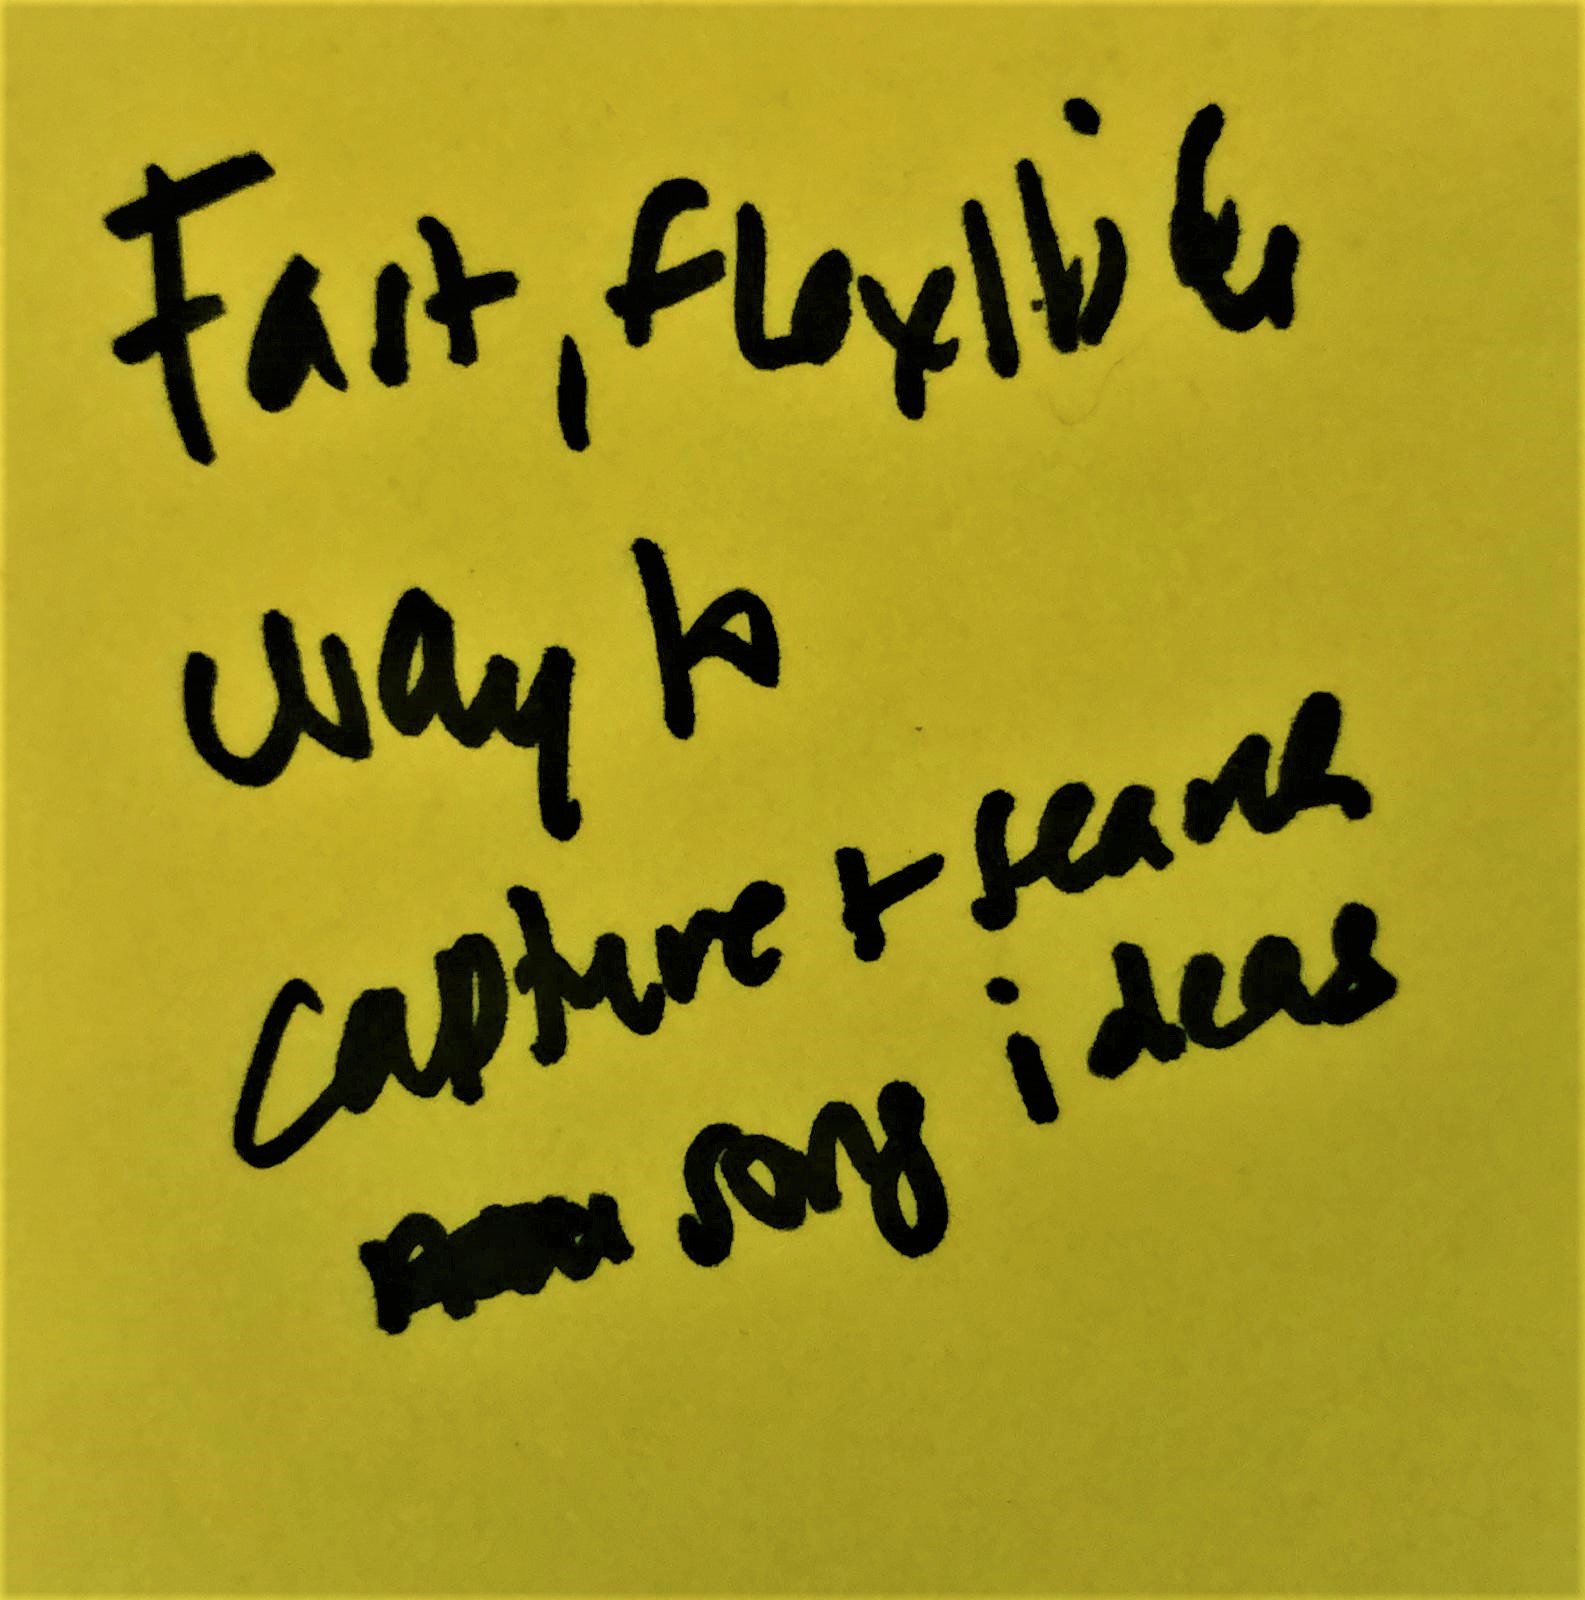 Fast, flexible
way to
capture + search
song ideas